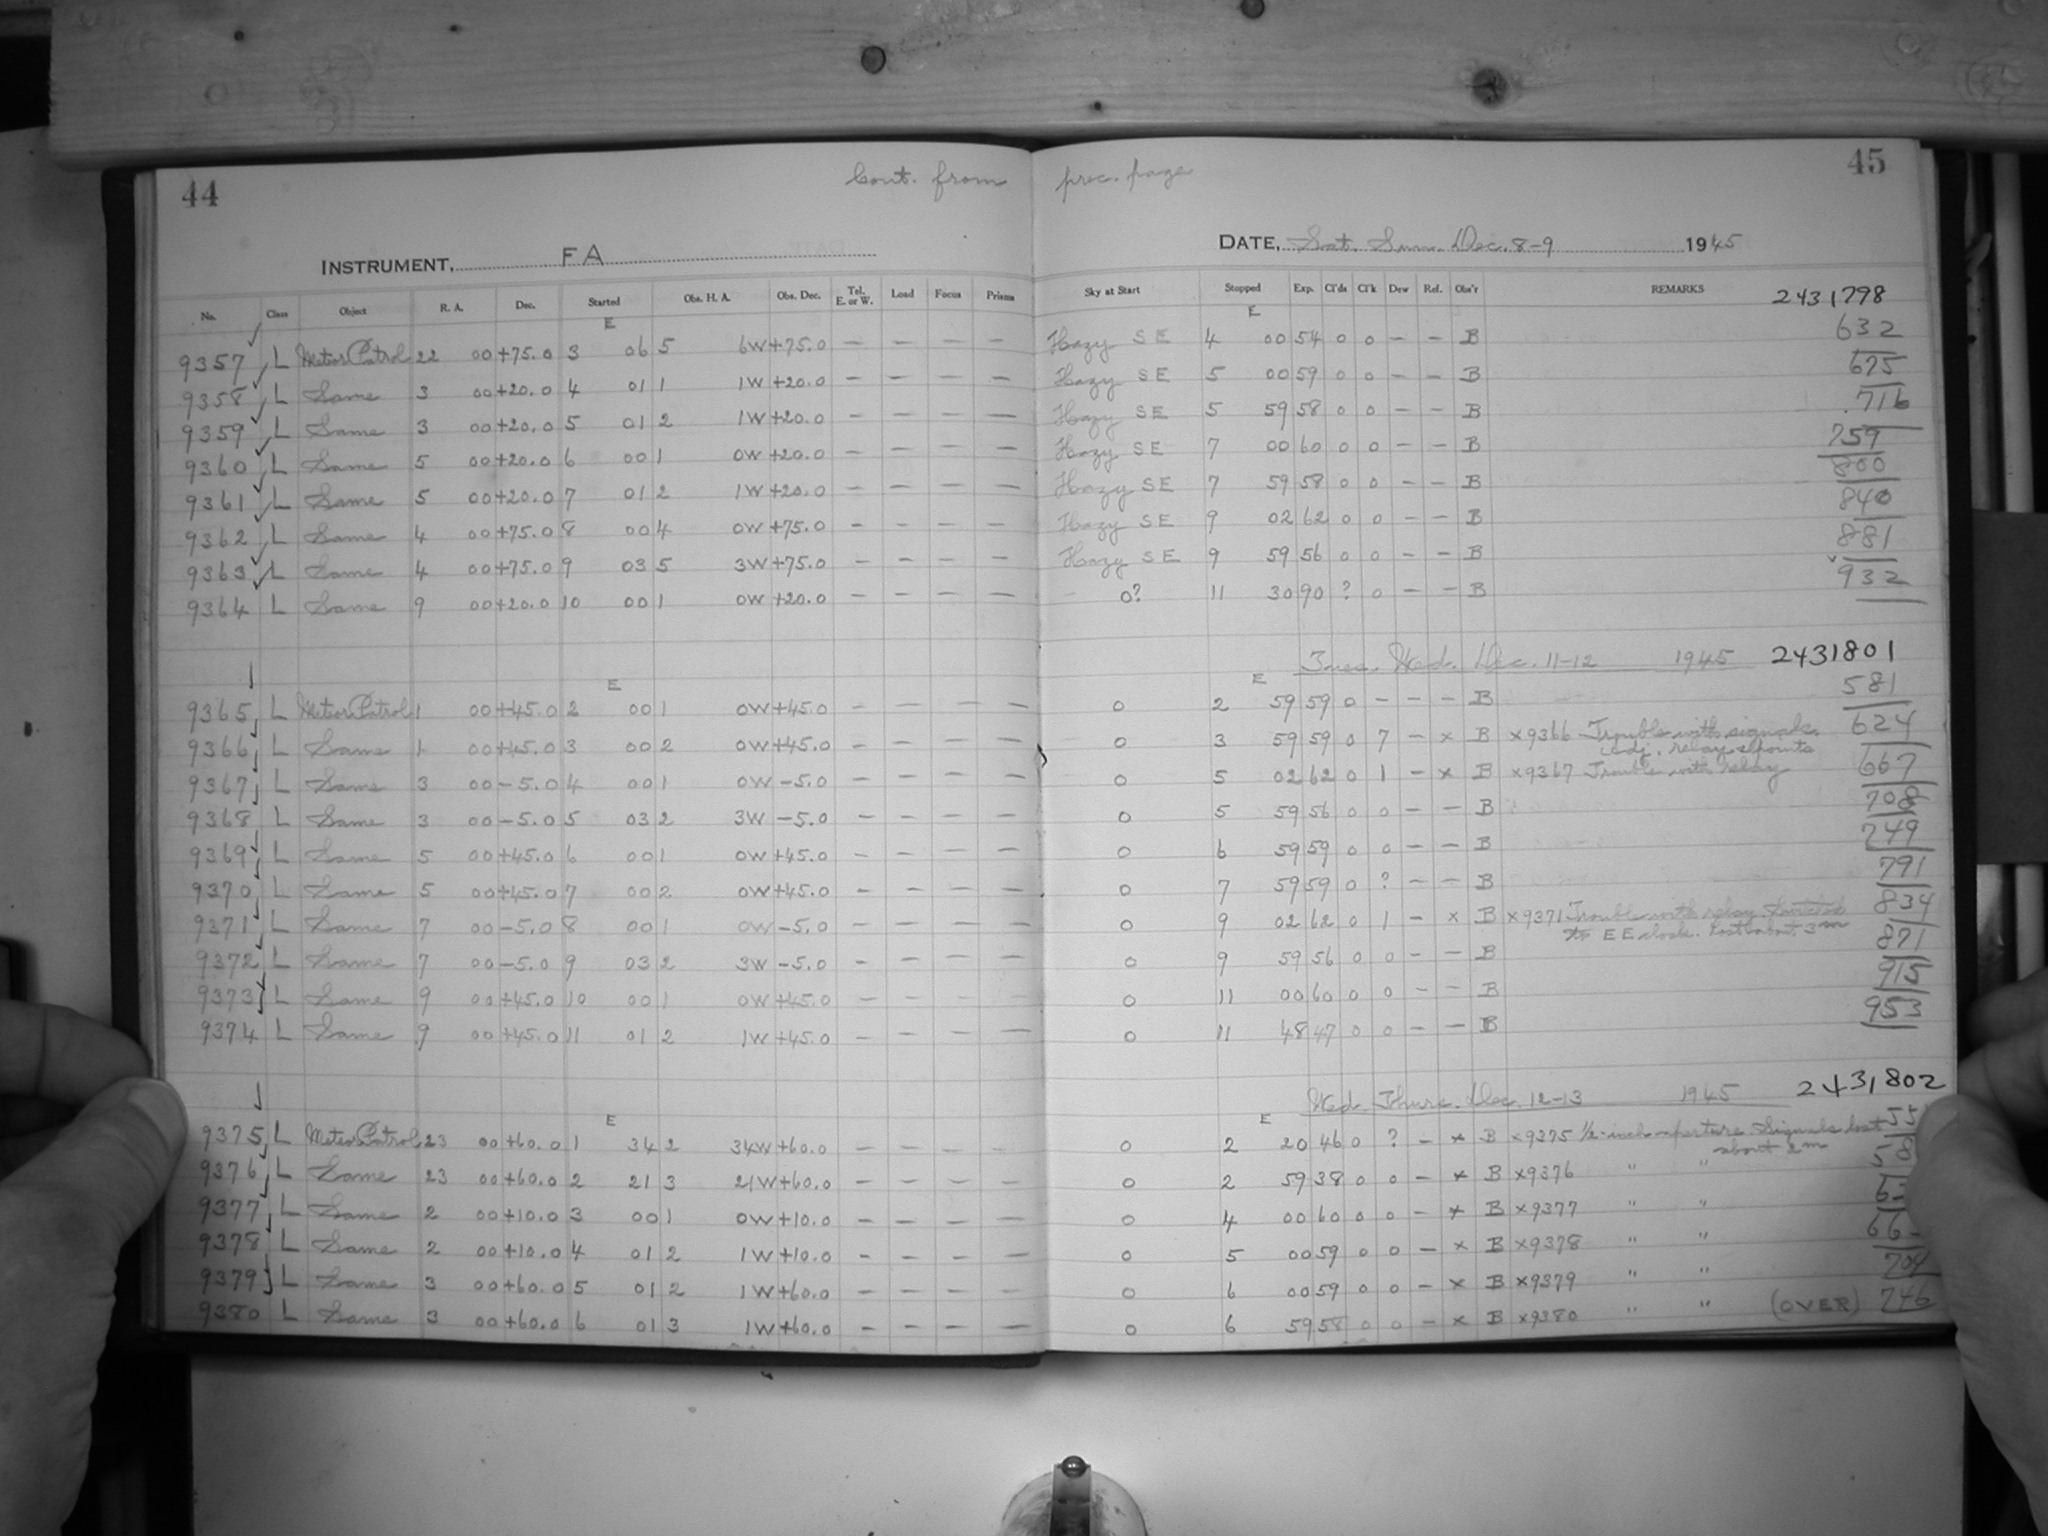 44 Cont. from prec. page 45
INSTRUMENT, FA DATE, Sat. Sun. Dec. 8-9 1945
No. Class Object R. A. Dec. Started Obs. H. A. Obs. Dec. Tel. E. or W. Load Focus Prisms Sky at Start Stopped Exp. Cl'ds Cl'k Dew Ref. Obs'r REMARKS 2431798
E E
9357 L Meteor Patrol 22 00 +75.0 3 06 5 6W +75.0 — — — — Hazy SE 4 00 54 0 0 — — B 632
9358 L Same 3 00 +20.0 4 01 1 1W +20.0 — — — — Hazy SE 5 00 59 0 0 — — B 675
9359 L Same 3 00 +20.0 5 01 2 1W +20.0 — — — — Hazy SE 5 59 58 0 0 — — B .716
9360 L Same 5 00 +20.0 6 00 1 0W +20.0 — — — — Hazy SE 7 00 60 0 0 — — B 759
9361 L Same 5 00 +20.0 7 01 2 1W +20.0 — — — — Hazy SE 7 59 58 0 0 — — B 800
9362 L Same 4 00 +75.0 8 00 4 0W +75.0 — — — — Hazy SE 9 02 62 0 0 — — B 840
9363 L Same 4 00 +75.0 9 03 5 3W +75.0 — — — — Hazy SE 9 59 56 0 0 — — B 881
9364 L Same 9 00 +20.0 10 00 1 0W +20.0 — — — — 0? 11 30 90 ? 0 — — B 932
Tues. Wed. Dec. 11-12 1945 2431801
E E
9365 L Meteor Patrol 1 00 +45.0 2 00 1 0W +45.0 — — — — 0 2 59 59 0 — — — B 581
9366 L Same 1 00 +45.0 3 00 2 0W +45.0 — — — — 0 3 59 59 0 7 — × B ×9366 Trouble with signals, 624
adj. relay points
9367 L Same 3 00 -5.0 4 00 1 0W -5.0 — — — — 0 5 02 62 0 1 — × B ×9367 Trouble with relay 667
9368 L Same 3 00 -5.0 5 03 2 3W -5.0 — — — — 0 5 59 56 0 0 — — B 708
9369 L Same 5 00 +45.0 6 00 1 0W +45.0 — — — — 0 6 59 59 0 0 — — B 749
9370 L Same 5 00 +45.0 7 00 2 0W +45.0 — — — — 0 7 59 59 0 ? — — B 791
9371 L Same 7 00 -5.0 8 00 1 0W -5.0 — — — — 0 9 02 62 0 1 — × B ×9371 Trouble with relay. Switched 834
to EE clock. Lost about 3m
9372 L Same 7 00 -5.0 9 03 2 3W -5.0 — — — — 0 9 59 56 0 0 — — B 871
9373 L Same 9 00 +45.0 10 00 1 0W +45.0 — — — — 0 11 00 60 0 0 — — B 915
9374 L Same 9 00 +45.0 11 01 2 1W +45.0 — — — — 0 11 48 47 0 0 — — B 953
Wed. Thurs. Dec. 12-13 1945 2431802
E E
9375 L Meteor Patrol 23 00 +60.0 1 34 2 34W +60.0 — — — — 0 2 20 46 0 ? — × B ×9375 1/2-inch aperture Signals lost 55
about 2m
9376 L Same 23 00 +60.0 2 21 3 21W +60.0 — — — — 0 2 59 38 0 0 — × B ×9376 " " 58
9377 L Same 2 00 +10.0 3 00 1 0W +10.0 — — — — 0 4 00 60 0 0 — × B ×9377 " " 6
9378 L Same 2 00 +10.0 4 01 2 1W +10.0 — — — — 0 5 00 59 0 0 — × B ×9378 " " 66
9379 L Same 3 00 +60.0 5 01 2 1W +60.0 — — — — 0 6 00 59 0 0 — × B ×9379 " " 704
9380 L Same 3 00 +60.0 6 01 3 1W +60.0 — — — — 0 6 59 58 0 0 — × B ×9380 " " (OVER) 746